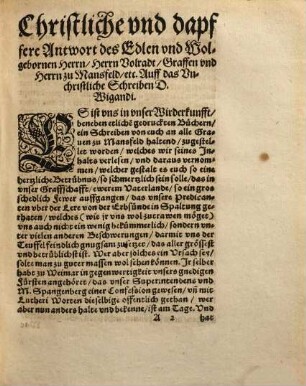 Christliche vnd dapf
fere Antwort des Edlen vnd Wol
gebornen Herrn/ Herrn Volradt/ Graffen vnd
Herrn zu Mansfeld/ etc. Auff das Vn
christliche Schreiben D.
Wigandi.
ES ist vns in vnser Widerkunfft
beneben etlichē gedruckten Büchern/
ein Schreiben von euch an alle Gra
uen zu Mansfeld haltend/ zugestel
let worden/ welches wir seines In
halts verlesen/ vnd daraus vernom
men/ welcher gestalt es euch so eine
hertzliche Betrübnus/ so schmertzlich sein solle/ das in
vnser Graffschafft/ ewerem Vaterlande/ so ein gros
schedlich Fewer auffgangen/ das vnsere Predican
ten vber der Lere von der Erbsünde in Spaltung ge
rhaten/ welches (wie jr vns wol zutrawen möget)
vns auch nicht ein wenig bekümmerlich/ sondern vn
ter vielen anderen Beschwerungen/ darmit vns der
Teuffel feindlich gnugsam zusetzet/ das aller grössest
vnd betrüblichst ist. Wer aber solches ein Vrsach sey/
solte man zu guter massen wol sehen können. Jr selber
habt zu Weimar in gegenwertigkeit vnsers gnedigen
Fürsten angehöret/ das vnser Superintendens vnd
M. Spangenberg einer Confession gewesen/ vñ mit
Lutheri Worten dieselbige offentlich gethan/ wer
aber nun anders halte vnd bekenne/ ist am Tage. Vnd
A 2 hat